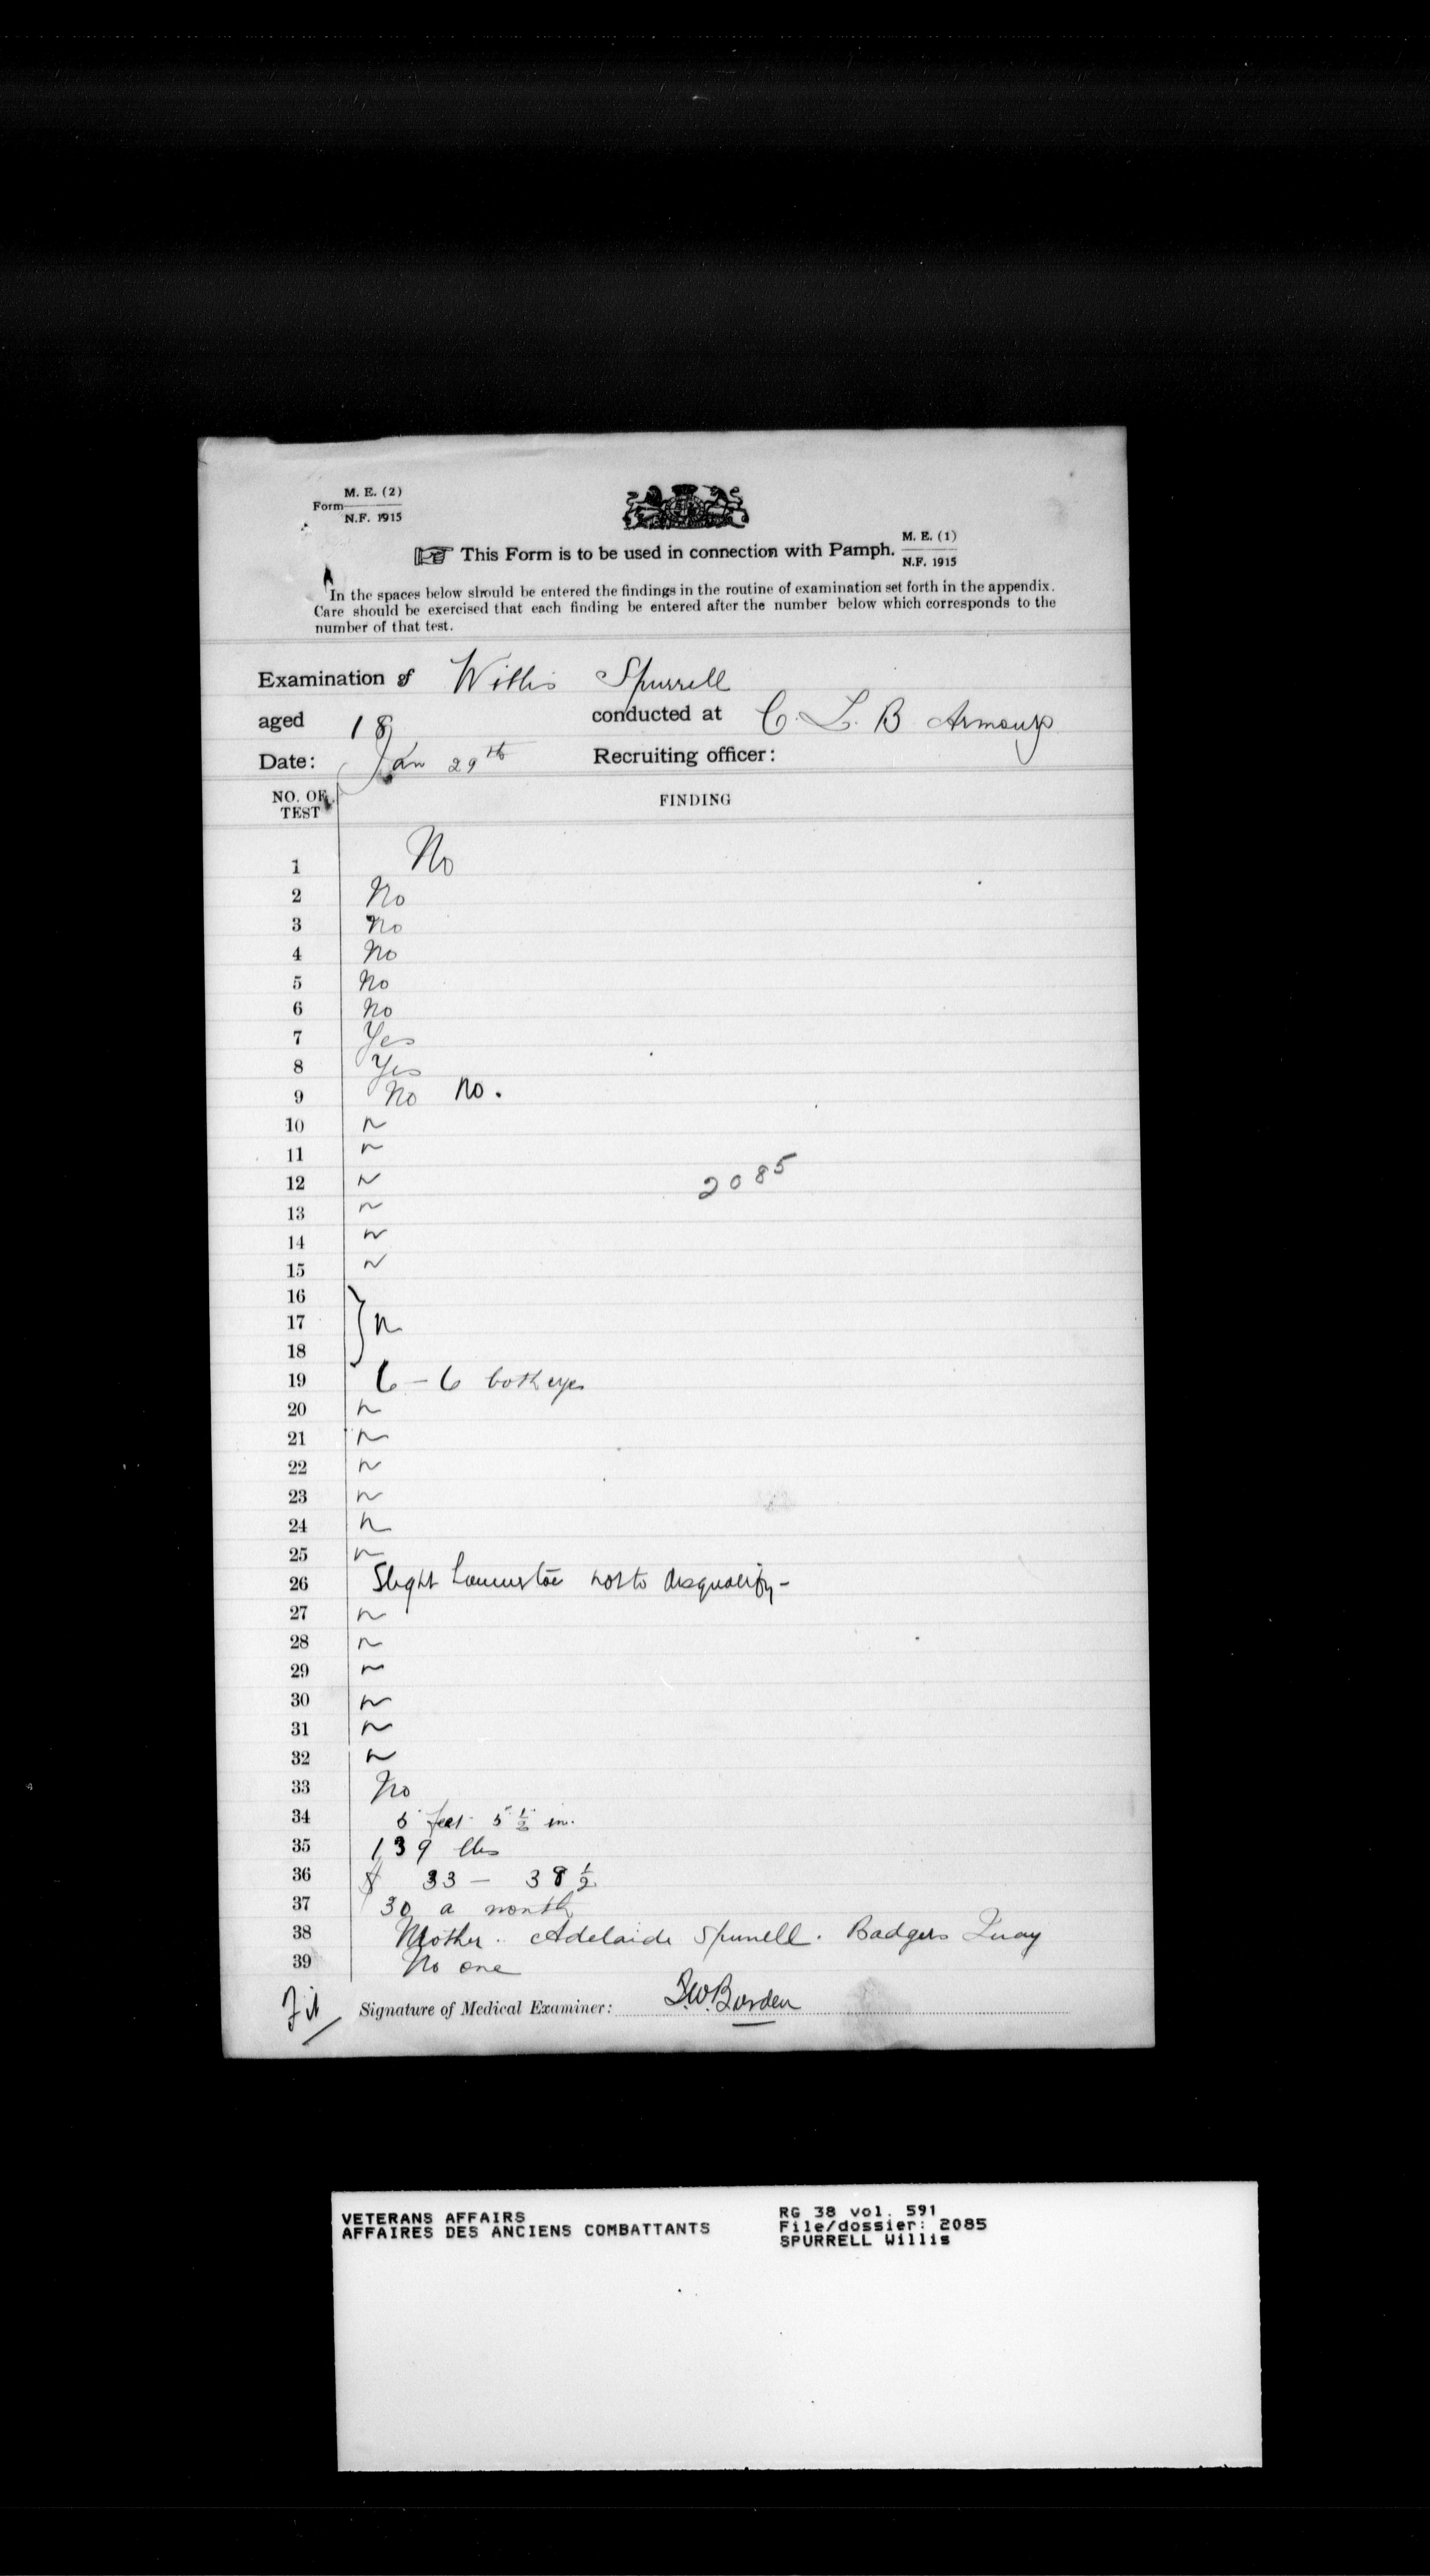 M. E. (2)
Form
N.F. 1915
M. E. (1)
This Form is to be used in connection with Pamph.
N.F. 1915
In the spaces below should be entered the findings in the routine of examination set forth in the appendix.
Care should be exercised that each finding be entered after the number below which corresponds to the
number of that test.
Examination of Willis Spurrell
aged 18 conducted at C. L. B Armoury
Date: Jan 29th Recruiting officer:
NO. OF TEST FINDING
1 No
2 No
3 No
4 No
5 No
6 No
7 Yes
8 Yes
9 No No.
10 n
11 n
2085
12 n
13 n
14 n
15 n
16
17 } n
18
19 6 - 6 both eyes
20 n
21 n
22 n
23 n
24 n
25 n
26 Slight hammertoe not to disqualify -
27 n
28 n
29 n
30 n
31 n
32 n
33 No
34 5 feet 5 1/2 in.
35 139 lbs
36 33 - 38 1/2
37 $ 30 a month
38 Mother. Adelaide Spurrell. Badgers Quay
39 No one
Fit Signature of Medical Examiner: Burden
VETERANS AFFAIRS RG 38 vol. 591
AFFAIRES DES ANCIENS COMBATTANTS File/dossier: 2085
SPURRELL Willis